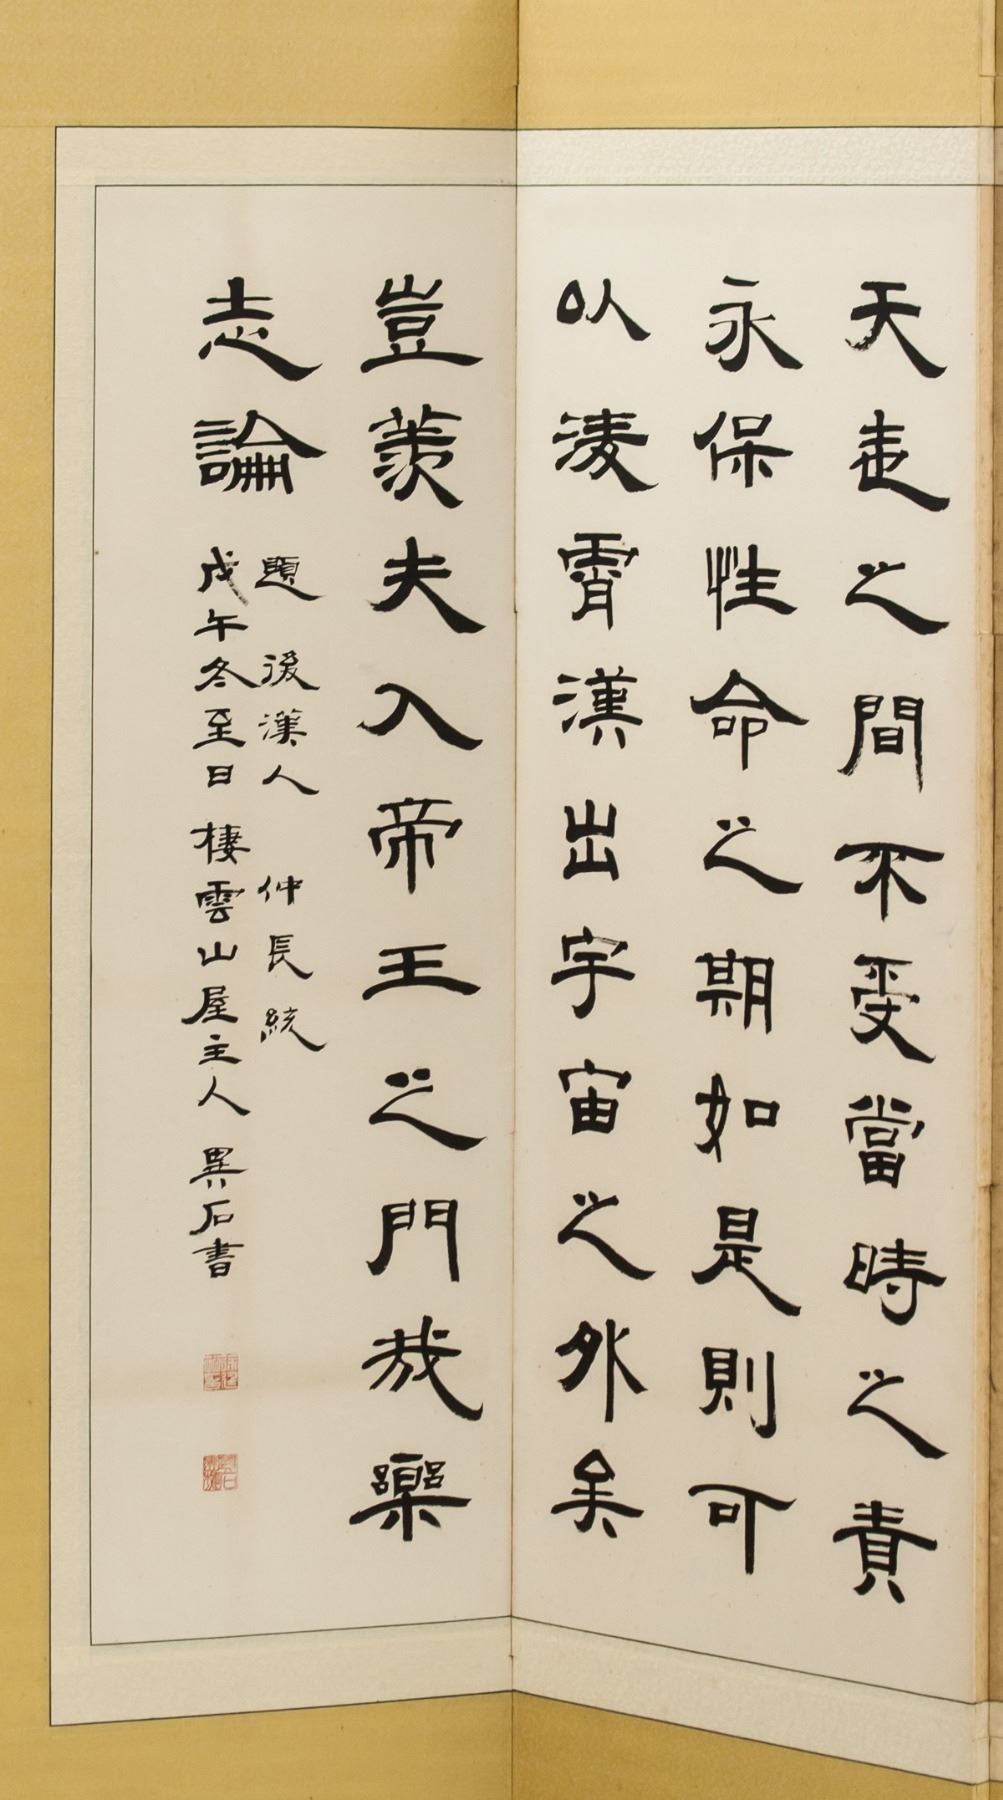 天地之間不受當時之責
永保性命之期如是則可
以淩霄漢出宇宙之外矣
豈羨夫入帝王之門哉樂
志論
題 後漢人 仲長統
戊午冬至日 棲雲山屋主人 異石書